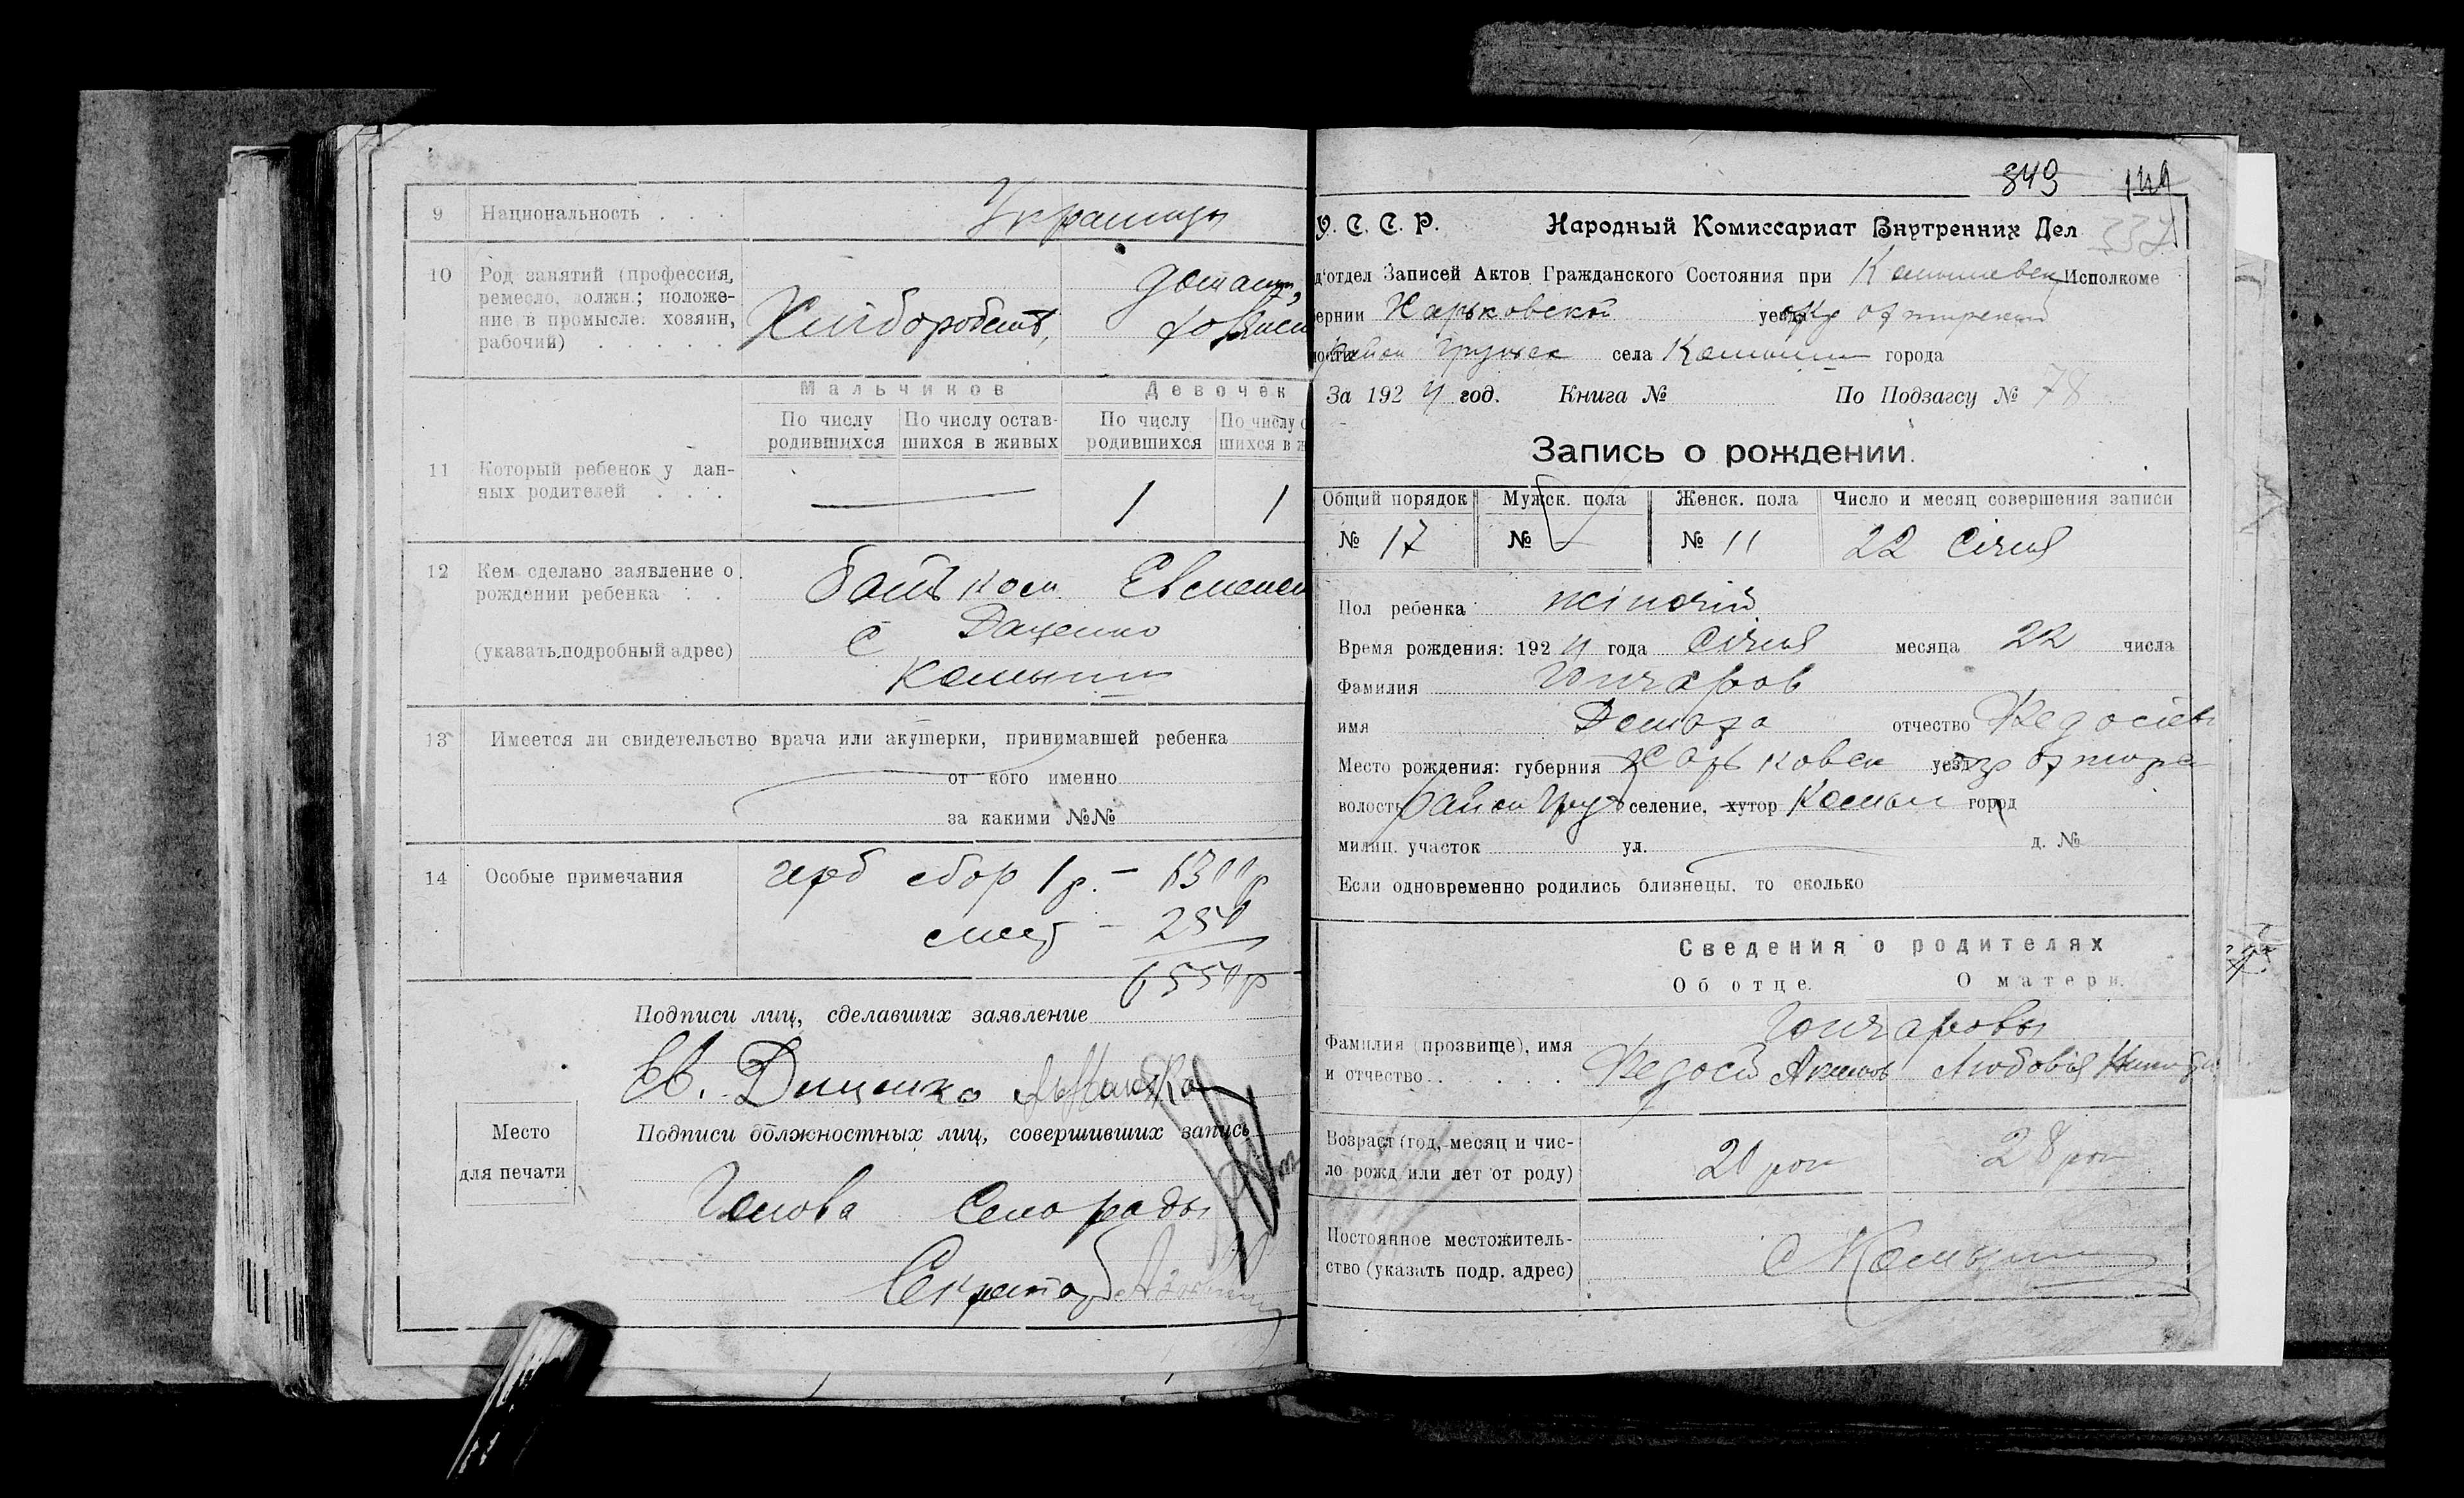 9 Национальность . . . Украинцы
10 Род занятий (профессия, ремесло, должн.; положе-
ние в промысле: хозяин,
рабочий) . . . . . Хлiборобств,
Мальчиков Девочек
По числу родившихся По числу остав-шихся в живых По числу родившихся По числу
11 Который ребенок у дан-
ных родителей . . . — 1 1
12 Кем сделано заявление о
рождении ребенка . . батьком Евсмен
Даценко
(указать подробный адрес) с
Камыши
13 Имеется ли свидетельство врача или акушерки, принимавшей ребенка
от кого именно
за какими №№
14 Особые примечания герб сбор 1 р. — 6300 р
250
6550 р
Подписи лиц, сделавших заявление
Ев. Даценко
Место
для печати
Подписи должностных лиц, совершивших запись
Голова Сельрады
Секретарь
849 149
337
У. С. С. Р. Народный Комиссариат Внутренних Дел
отдел Записей Актов Гражданского Состояния при Камышевск Исполкоме
ернии Харьковской уезд окр Охтирской
район Грунск села Камыши города
За 1924 год. Книга № По Подзагсу № 78
Запись о рождении.
Общий порядок Мужск. пола Женск. пола Число и месяц совершения записи
№ 17 № — № 11 22 Січня
Пол ребенка жіночій
Время рождения: 1924 года Січня месяца 22 числа
Фамилия Гончаров
имя Домаха отчество Федосіев
Место рождения: губерния Харьковск уезд окр Охтирс
волость район Грун селение, хутор Камыш город
милиц. участок ул. д. №
Если одновременно родились близнецы, то сколько
Сведения о родителях
Об отце. О матери.
Гончаровы
Фамилия (прозвище), имя
и отчество . . . . . Федосій Акимов Любовія
Возраст (год, месяц и чис-
ло рожд или лет от роду) 20 рок 28 рок
Постоянное местожитель-
ство (указать подр. адрес) с Камыши